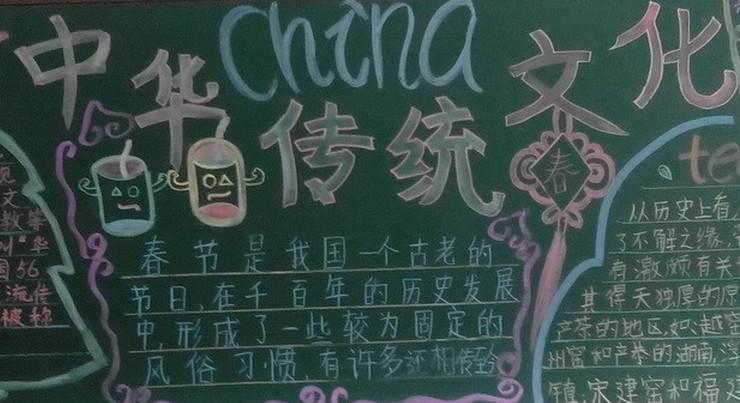 China
中华
传统
文化
春
te
春节是我国一个古老的
节日,在千百年的历史发展
中,形成了一些较为固定的
风俗习惯,有许多还相传至今
文
教等
叫“华
国56
流传
被称
从历史上看,
了不解之缘,
有激颇有关
其得天独厚的原
产茶的地区,如:越窑
州窑和产茶的湖南,浮
镇,宋建窑和福建